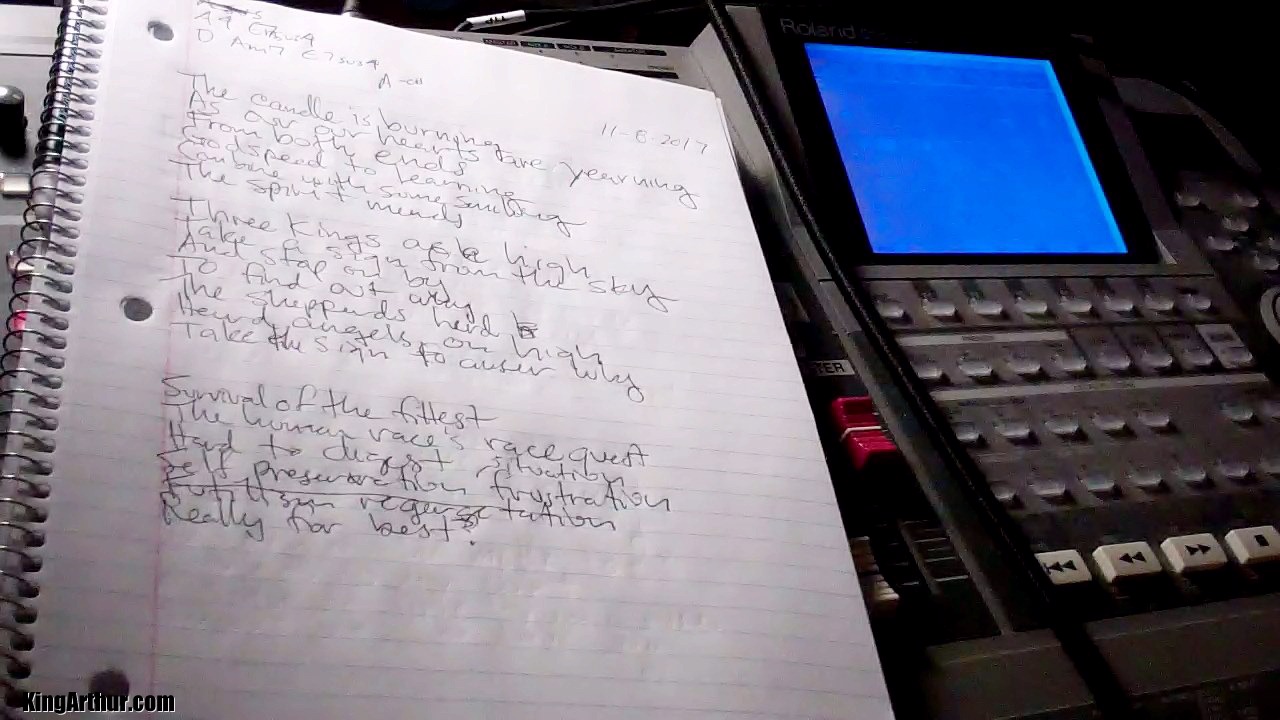 E7sus4
D Am7 E7sus4
A
11-8-2017
The candle is burning
As our hearts are yearning
From both ends
Godspeed to learning
with some smiling
The spirit mends
Three Kings high
Take a sign from the sky
And
To find out why
The shepperds herd
Heard angels on high
Take the sign to answer why
Survival of the fittest
The human race's race quest
Hard to digest situation
Self preservation frustration
Really for best?
Roland
KingArthur.com